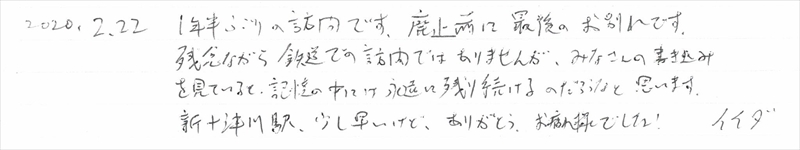 2020.2.22 1年半ぶりの訪問です。廃止前に最後のお別れです。
残念ながら鉄道での訪問ではありませんが、みなさんの書き込み
を見ていると、記憶の中には永遠に残り続けるのだろうなと思います。
新十津川駅、少し早いけど、ありがとう。お疲れ様でした! イイダ